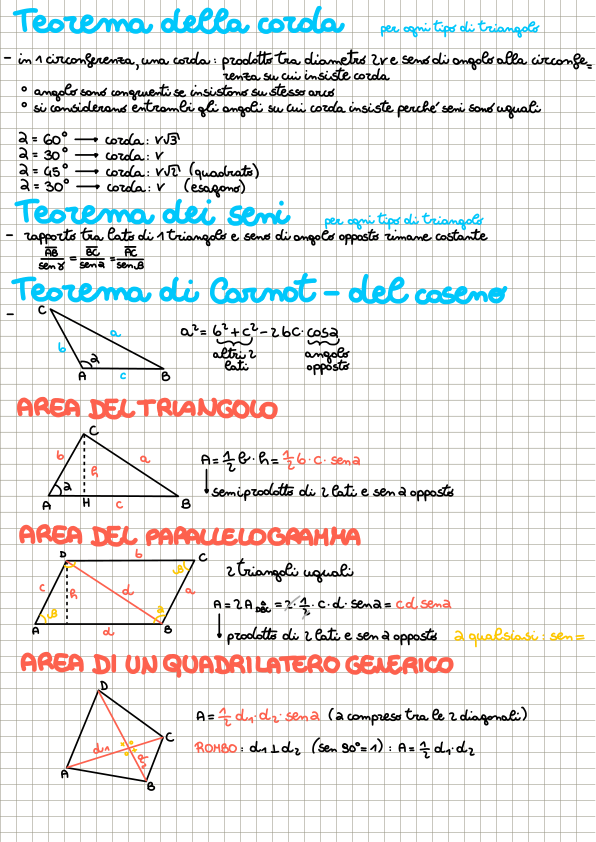 Teorema della corda per ogni tipo di triangolo
- in 1 circonferenza, una corda: prodotto tra diametro 2r e seno di angolo alla circonfe=
renza su cui insiste corda
° angolo sono congruenti se insistono su stesso arco
° si considerano entrambi gli angoli su cui corda insiste perché seni sono uguali
α = 60° → corda: r√3
α = 30° → corda: r
α = 45° → corda: r√2 (quadrato)
α = 30° → corda: r (esagono)
Teorema dei seni per ogni tipo di triangolo
- rapporto tra lato di 1 triangolo e seno di angolo opposto rimane costante
AB/sen γ = BC/sen α = AC/sen β
Teorema di Carnot - del coseno
-
C
b a α
A c B
a² = b² + c² - 2bc · cos α
altri 2 angolo
lati opposto
AREA DEL TRIANGOLO
C
b h a α
A H c B
A = 1/2 b · h = 1/2 b · c · sen α
↓ semiprodotto di 2 lati e sen α opposto
AREA DEL PARALLELOGRAMMA
D b C
c h d a β
β α
A d B
2 triangoli uguali
A = 2A ABC = 2 · 1/2 · c · d · sen α = c d sen α
↓ prodotto di 2 lati e sen α opposto α qualsiasi: sen =
AREA DI UN QUADRILATERO GENERICO
D
C
d1 d2
A
B
A = 1/2 d1 · d2 · sen α (α compreso tra le 2 diagonali)
ROMBO: d1 ⊥ d2 (sen 90° = 1) : A = 1/2 d1 · d2